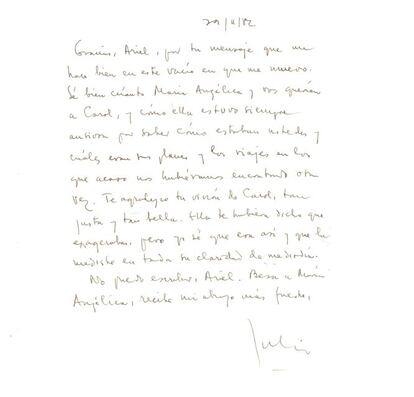 29/11/82
Gracias, Ariel, por tu mensaje que me
hace bien en este vacío en que me muevo.
Sé bien cuánto María Angélica y vos querían
a Carol, y cómo ella estuvo siempre
ansiosa por saber cómo estaban ustedes y
cuáles eran sus planes y los viajes en los
que acaso nos hubiéramos encontrado otra
vez. Te agradezco tu visión de Carol, tan
justa y tan bella. Ella te hubiera dicho que
exagerabas, pero yo sé que era así y que la
mediste en toda su claridad de mediodía.
No puedo escribir, Ariel. Besa a María
Angélica, recibe mi abrazo más fuerte,
Julio